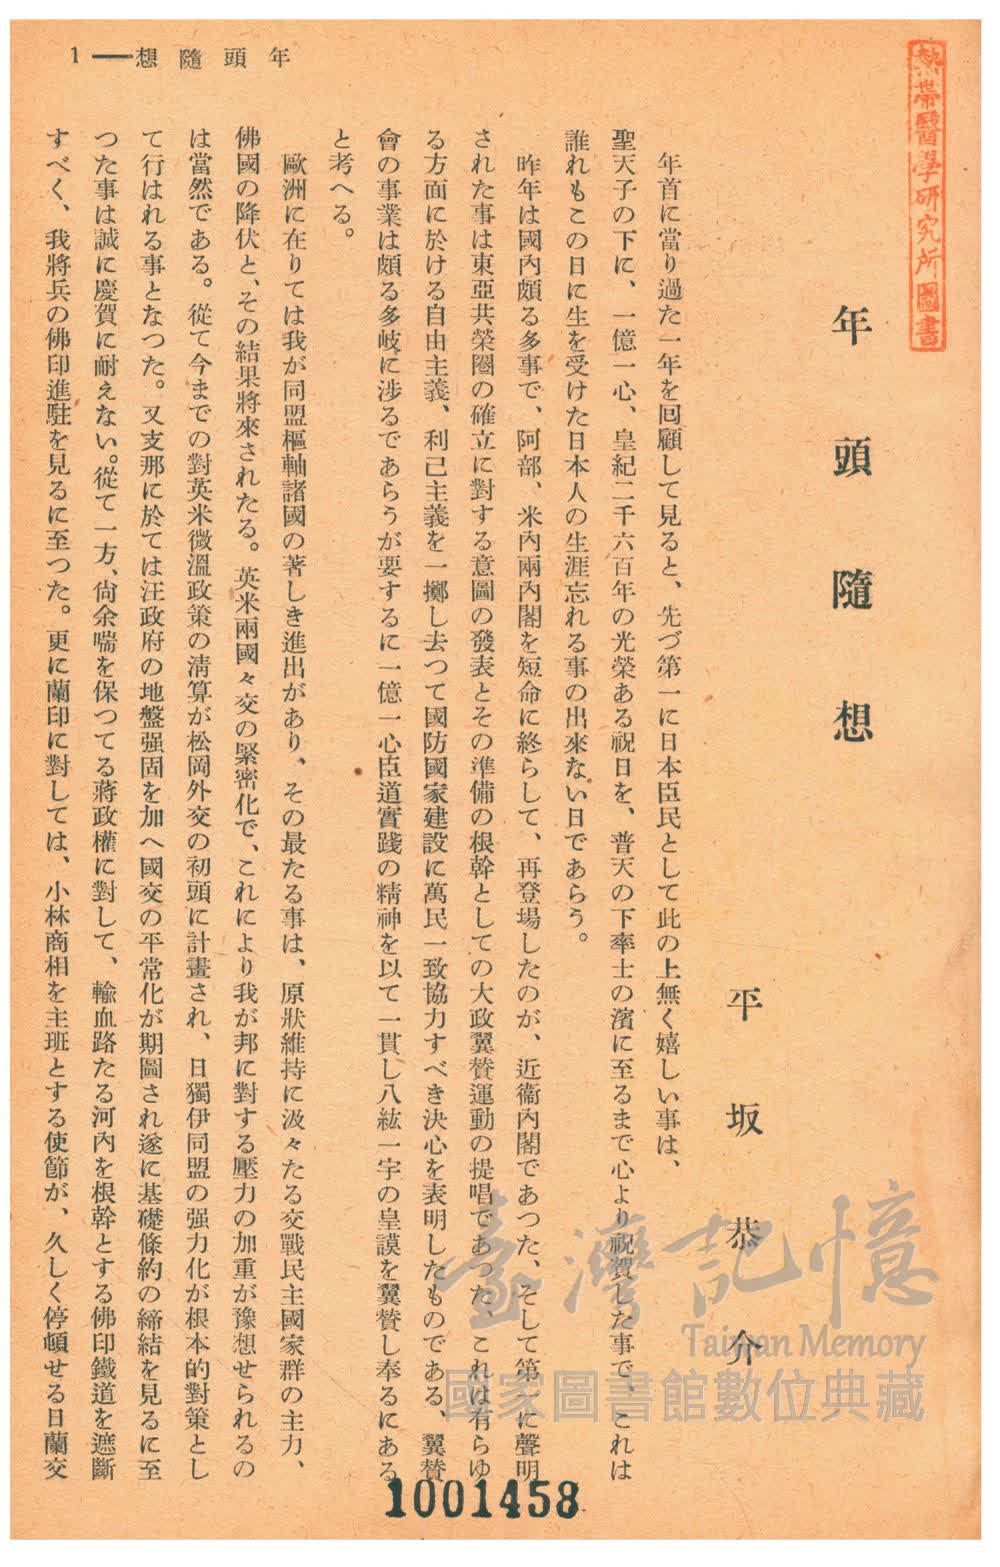 年頭隨想——1
熱帶醫學研究所圖書
年頭隨想
平坂恭介
年首に當り過た一年を回顧して見ると、先づ第一に日本臣民として此の上無く嬉しい事は、
聖天子の下に、一億一心、皇紀二千六百年の光榮ある祝日を、普天の下率土の濱に至るまで心より祝賀した事で、これは
誰れもこの日に生を受けた日本人の生涯忘れる事の出來ない日であらう。
昨年は國內頗る多事で、阿部、米內兩內閣を短命に終らして、再登場したのが、近衞內閣であつた、そして第一に聲明
された事は東亞共榮圈の確立に對する意圖の發表とその準備の根幹としての大政翼賛運動の提唱であつた、これは有らゆ
る方面に於ける自由主義、利己主義を一擲し去つて國防國家建設に萬民一致協力すべき決心を表明したものである、翼賛
會の事業は頗る多岐に涉るであらうが要するに一億一心臣道實踐の精神を以て一貫し八紘一宇の皇謨を翼賛し奉るにある
と考へる。
歐洲に在りては我が同盟樞軸諸國の著しき進出があり、その最たる事は、原狀維持に汲々たる交戰民主國家群の主力、
佛國の降伏と、その結果將來されたる。英米兩國々交の緊密化で、これにより我が邦に對する壓力の加重が豫想せられるの
は當然である。從て今までの對英米微溫政策の淸算が松岡外交の初頭に計畫され、日獨伊同盟の强力化が根本的對策とし
て行はれる事となつた。又支那に於ては汪政府の地盤强固を加へ國交の平常化が期圖され遂に基礎條約の締結を見るに至
つた事は誠に慶賀に耐えない。從て一方、尙余喘を保つてる蔣政權に對して、輸血路たる河內を根幹とする佛印鐵道を遮斷
すべく、我將兵の佛印進駐を見るに至つた。更に蘭印に對しては、小林商相を主班とする使節が、久しく停頓せる日蘭交
1001458
臺灣記憶
Taiwan Memory
國家圖書館數位典藏